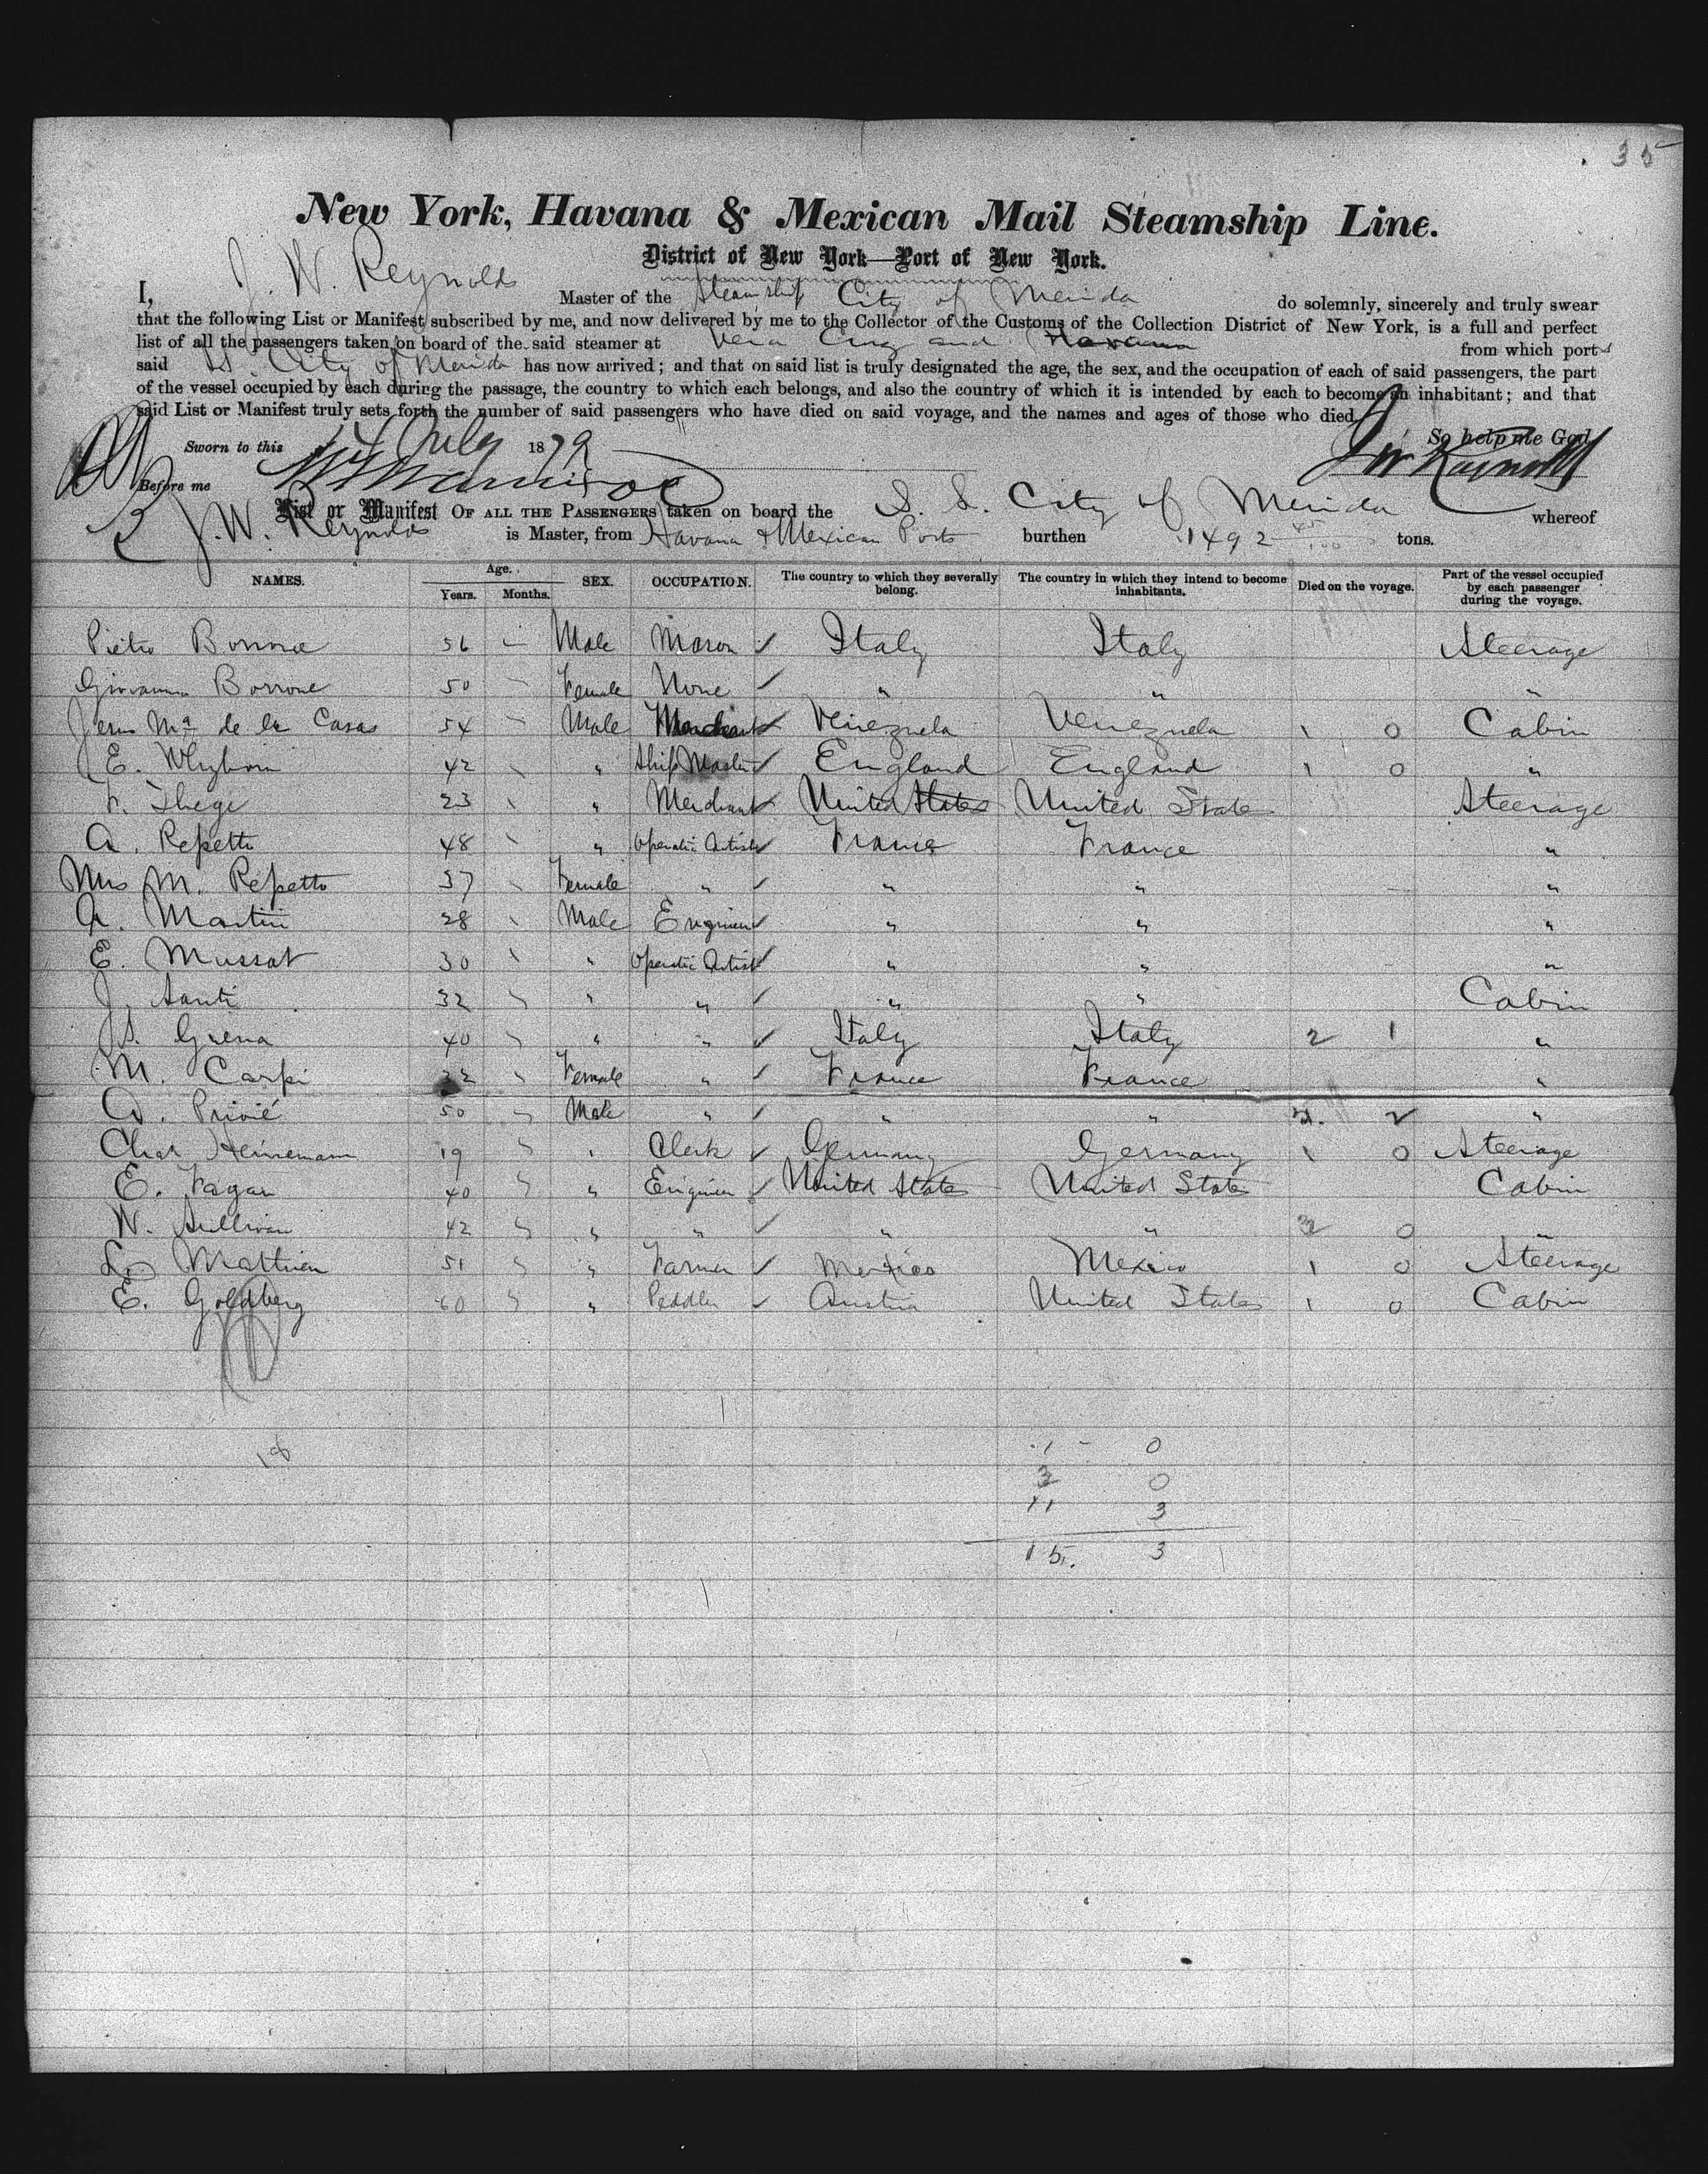 35
New York, Havana & Mexican Mail Steamship Line.
District of New York—Port of New York.
I, J. W. Reynolds Master of the Steamship City of Merida do solemnly, sincerely and truly swear
that the following List or Manifest subscribed by me, and now delivered by me to the Collector of the Customs of the Collection District of New York, is a full and perfect
list of all the passengers taken on board of the said steamer at Vera Cruz and Havana from which ports
said SS. City of Merida has now arrived; and that on said list is truly designated the age, the sex, and the occupation of each of said passengers, the part
of the vessel occupied by each during the passage, the country to which each belongs, and also the country of which it is intended by each to become an inhabitant; and that
said List or Manifest truly sets forth the number of said passengers who have died on said voyage, and the names and ages of those who died.
Sworn to this 14 July 1879 So help me God
Before me J W Reynolds
List or Manifest OF ALL THE PASSENGERS taken on board the S. S. City of Merida whereof
J. W. Reynolds is Master, from Havana & Mexican Ports burthen 1492 45/100 tons.
NAMES. Age. Years. Months. SEX. OCCUPATION. The country to which they severally belong. The country in which they intend to become inhabitants. Died on the voyage. Part of the vessel occupied by each passenger during the voyage.
Pietro 56 Male Mason Italy Italy Steerage
Giovanna Borrone 50 Female None " " "
Jesus Ma de la Casas 54 Male Merchant Venezuela Venezuela 1 0 Cabin
E. 42 " Ship Master England England 1 0 "
F. Thege 23 " Merchant United States United State Steerage
A. Repetto 48 " Operatic Artist France France "
Mrs M. Repetto 37 Female " " " "
A. Martin 28 Male Engineer " " "
E. Mussat 30 " Operatic Artist " " "
J. Santi 32 " " " " Cabin
S. Grena 40 " " Italy Italy 2 1 "
M. Carpi 32 Female " France France "
D. Privié 50 Male " " " 2. 2 "
Chas Heinemann 19 " Clerk Germany Germany 1 0 Steerage
E. Fagan 40 " Engineer United States United States Cabin
W. Sullivan 42 " " " " 3 0 "
L. Mathieu 51 " Farmer Mexico Mexico 1 0 Steerage
E. Goldberg 60 " Peddler Austria United States 1 0 Cabin
18
1 - 0
3 0
11 3
15. 3